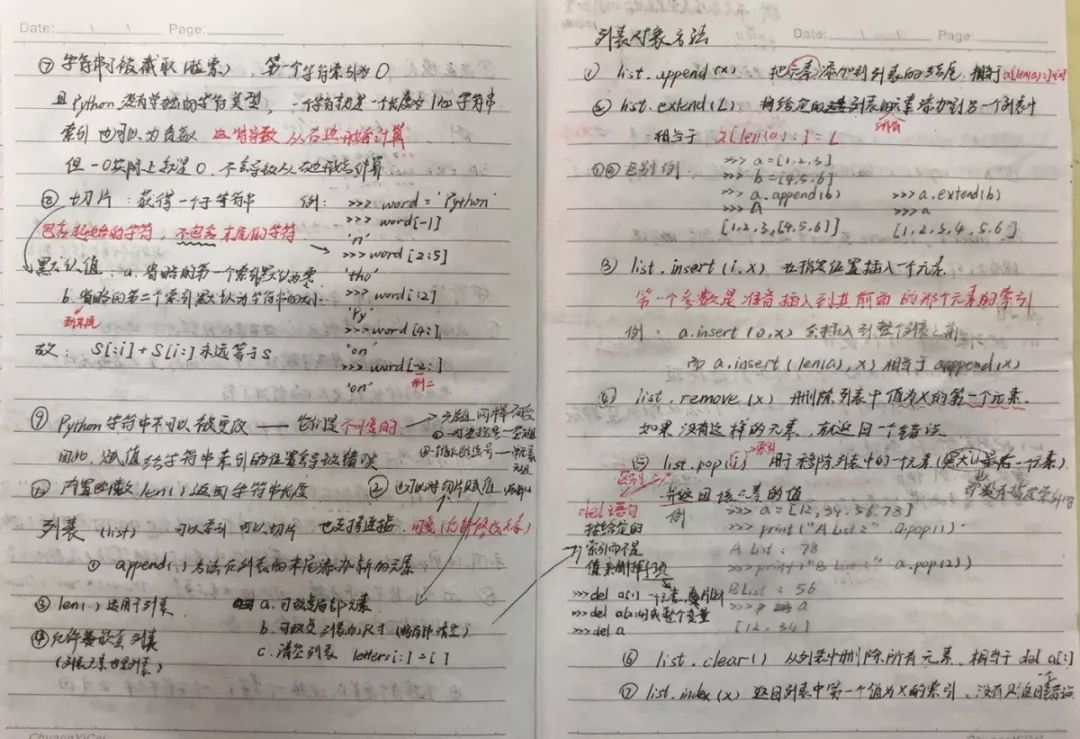 Date: Page:
⑦ 字符串可被截取(检索) 第一个字符索引为0
且Python没有单独的字符类型, 一个字符就是一个长度为1的字符串
索引也可以为负数 这将导致从右边开始计算
但-0实际上就是0, 不会导致从右边开始计算
⑧ 切片:获得一个子字符串 例: >>> word = 'Python'
>>> word[-1]
包含起始的字符, 不包含末尾的字符 'n'
>>> word[2:5]
默认值: a. 省略的第一个索引默认为零 'tho'
b. 省略的第二个索引默认为字符串的大小 >>> word[:2]
到末尾 'Py'
>>> word[4:]
故: S[:i] + S[i:] 永远等于S 'on'
>>> word[-2:]
'on' 倒二
⑨ Python字符串不可以被更改 —— 它们是不可变的
因此, 赋值给字符串索引的位置会导致错误
⑩ 内置函数len()返回字符串长度 ② 也可以对切片赋值,
列表 (list) 可以索引 可以切片 也支持连接, 可变(允许修改元素)
① append()方法在列表的末尾添加新的元素
③ len()适用于列表 a. 可改变局部元素
④ 允许嵌套列表 b. 可改变列表的尺寸
(列表元素也是列表) c. 清空列表 letters[:] = []
列表对象方法 Date: Page:
① list.append(x) 把元素添加到列表的结尾, 相当于a[len(a):]=[x]
② list.extend(L) 将给定的列表的元素添加到另一个列表中
相当于 a[len(a):] = L 列表
①②区别例: >>> a=[1,2,3]
>>> b=[4,5,6]
>>> a.append(b) >>> a.extend(b)
>>> a >>> a
[1,2,3,[4,5,6]] [1,2,3,4,5,6]
③ list.insert(i,x) 在指定位置插入一个元素
第一个参数是准备插入到其前面的那个元素的索引
例: a.insert(0,x) 会插入到整个列表之前
而a.insert(len(a),x) 相当于append(x)
④ list.remove(x) 删除列表中值为x的第一个元素.
如果没有这样的元素, 就返回一个错误
⑤ list.pop(i) 索引 用于移除列表中的一个元素(默认最后一个元素)
区别 并返回该元素的值
del语句 例 >>> a = [12, 34, 56, 78]
按给定的 >>> print("A List: " a.pop())
索引而不是 A List: 78
值来删除 >>> print("B List:" a.pop(2))
>>> del a[] 一个元素 B List: 56
>>> del a[:]或整个变量 >>> a
>>> del a [12, 34]
⑥ list.clear() 从列表中删除所有元素, 相当于del a[:]
⑦ list.index(x) 返回列表中第一个值为x的索引, 没有则返回一个错误